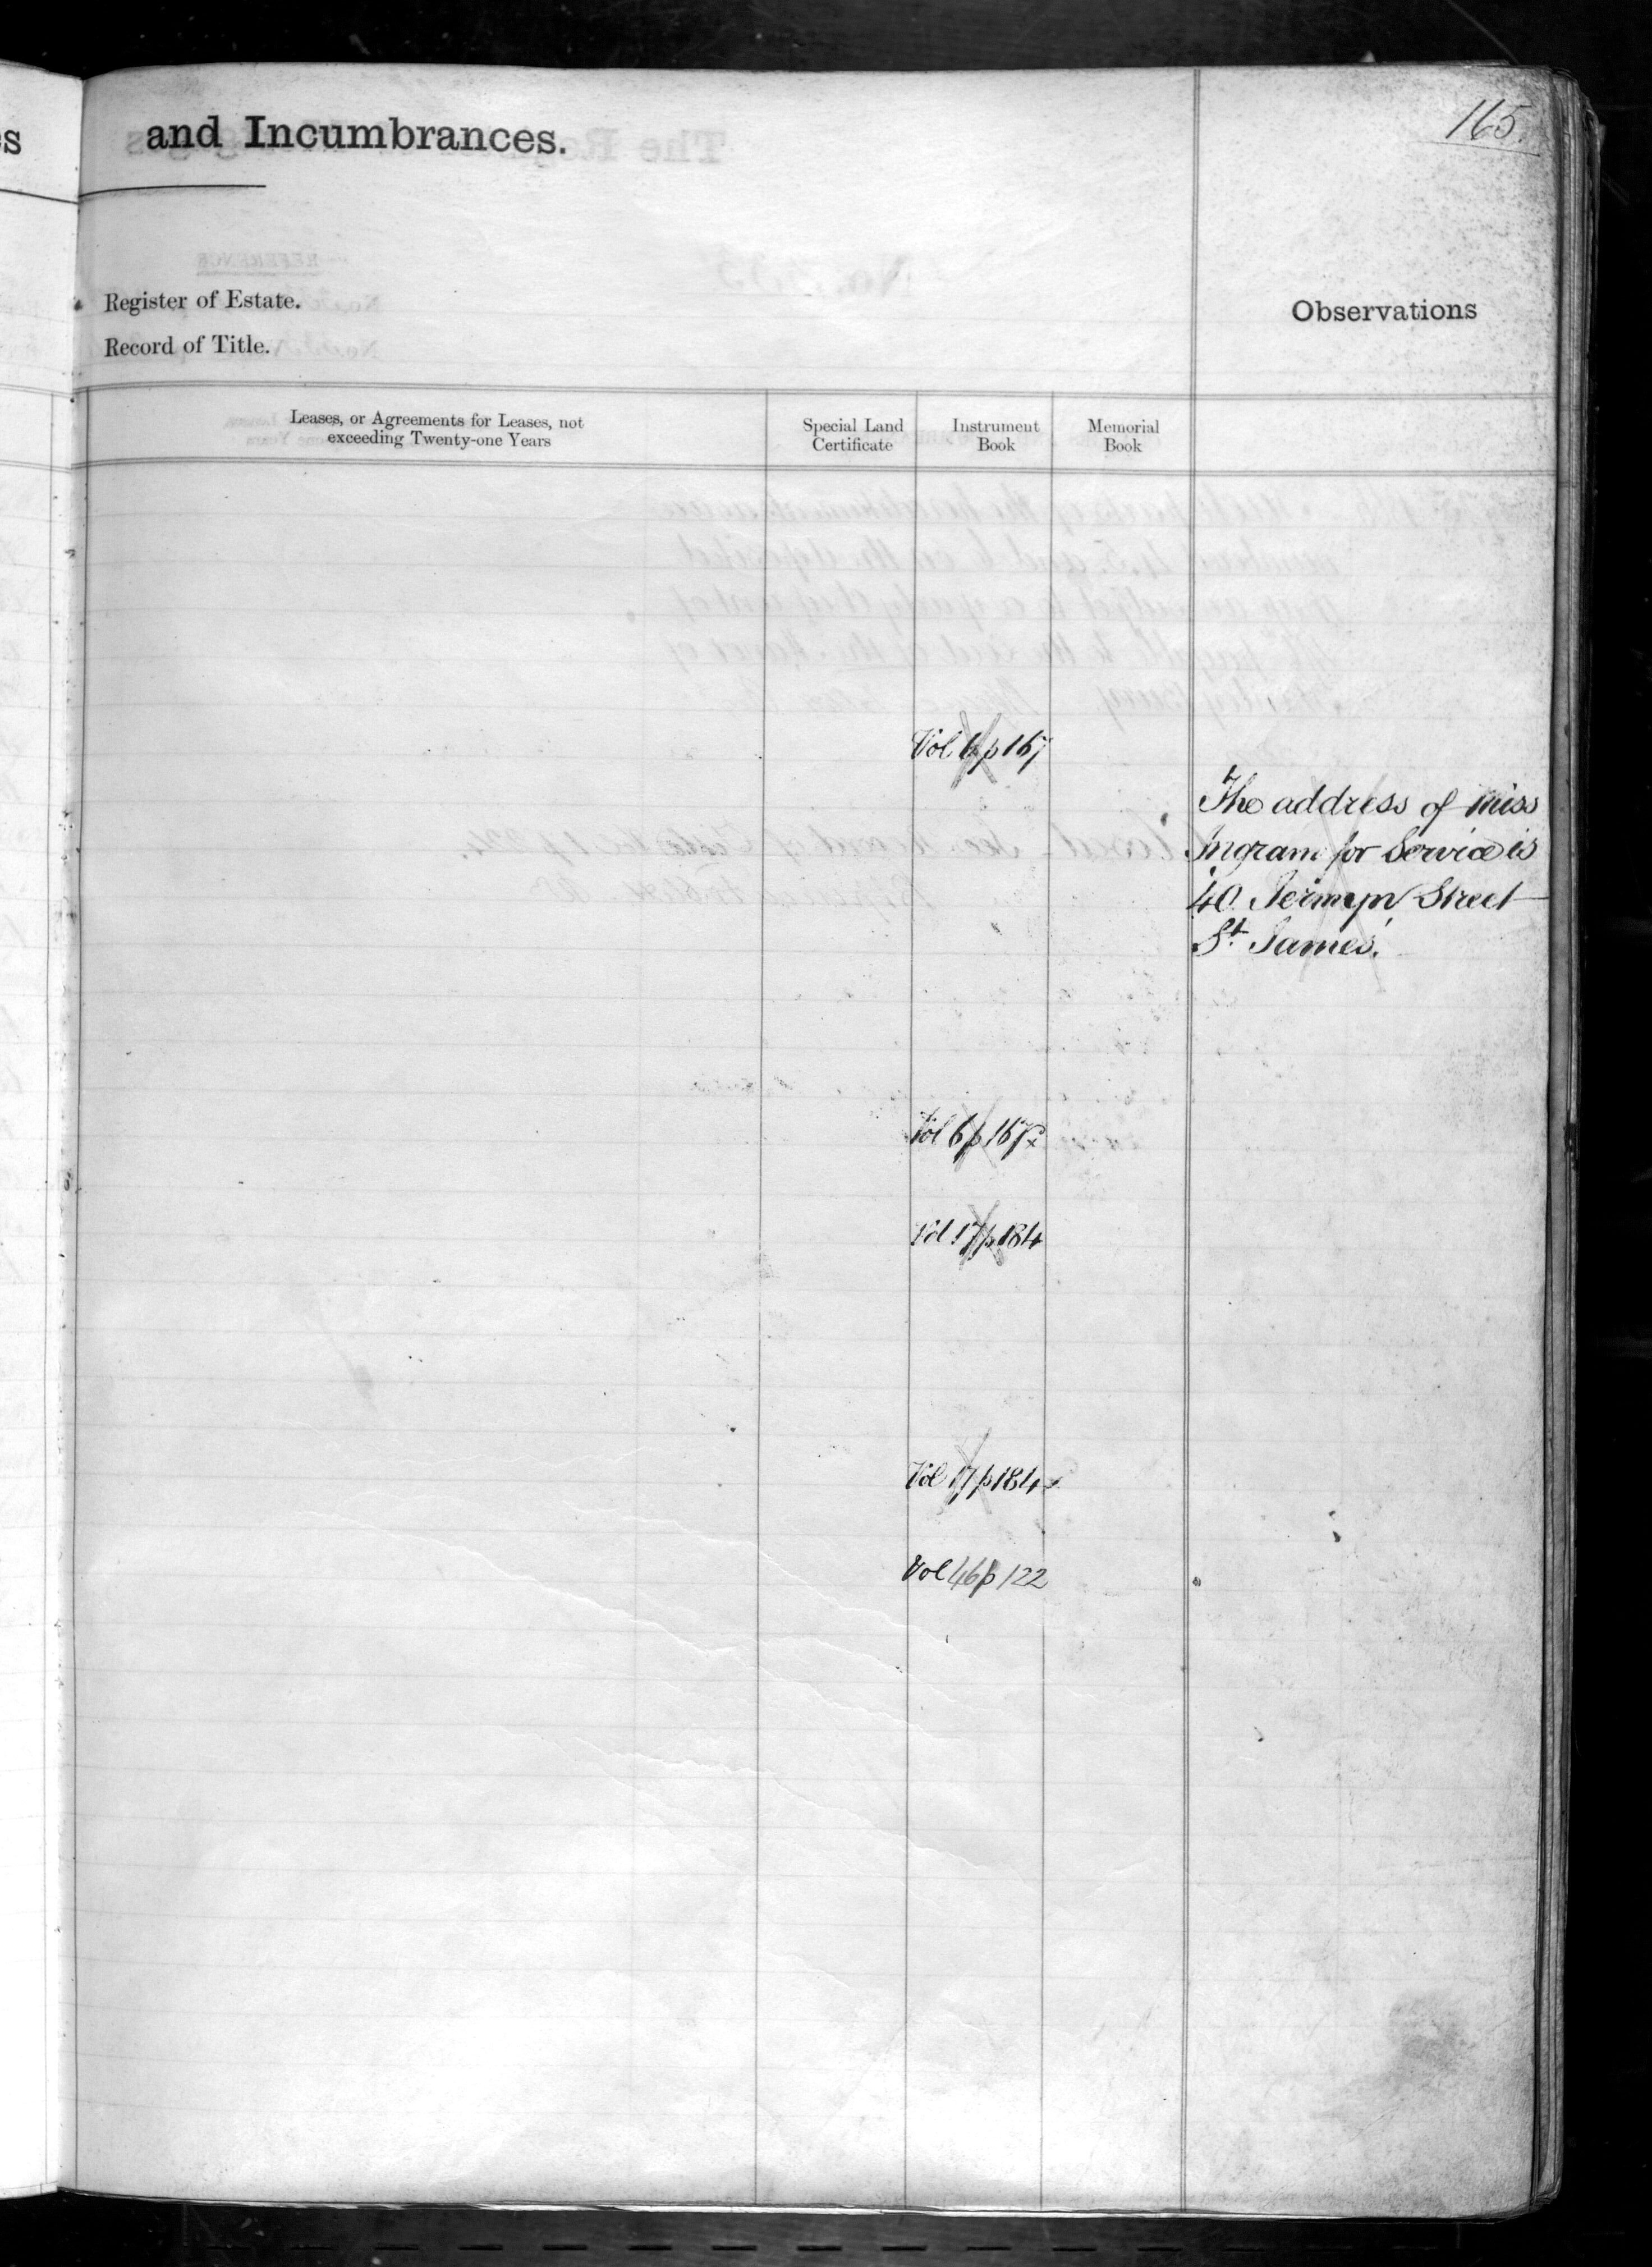 165.
es
and Incumbrances.
Register of Estate.
Record of Title.
Observations
Leases, or Agreements for Leases, not
exceeding Twenty-one Years
Special Land
Certificate
Instrument
Book
Memorial
Book
Vol 6 p 167
The address of Miss
Ingram for Service is
40 Jermyn Street
St. James.
Vol 6 p 167
Vol 17 p 184
Vol 17 p 184
Vol 46 p 122